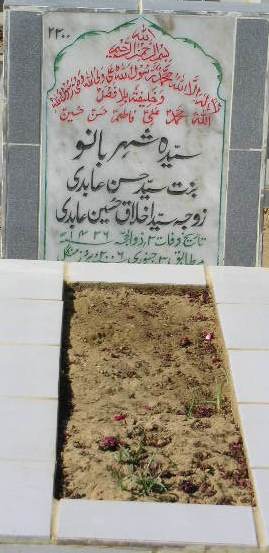 ۲۲۰۰
الله
بسم الله الرحمن الرحيم
لا اله الا الله محمد رسول الله علی ولی الله وصی رسول الله
و خليفته بلا فصل
الله محمد علی فاطمه حسن حسین
سیدہ شہر بانو
بنت سید حسن عابدی
زوجہ سید اخلاق حسین عابدی
تاریخ وفات ۲ ذوالحجہ ۱۴۲۶
مطابق ۳ جنوری ۲۰۰۶ بروز منگل